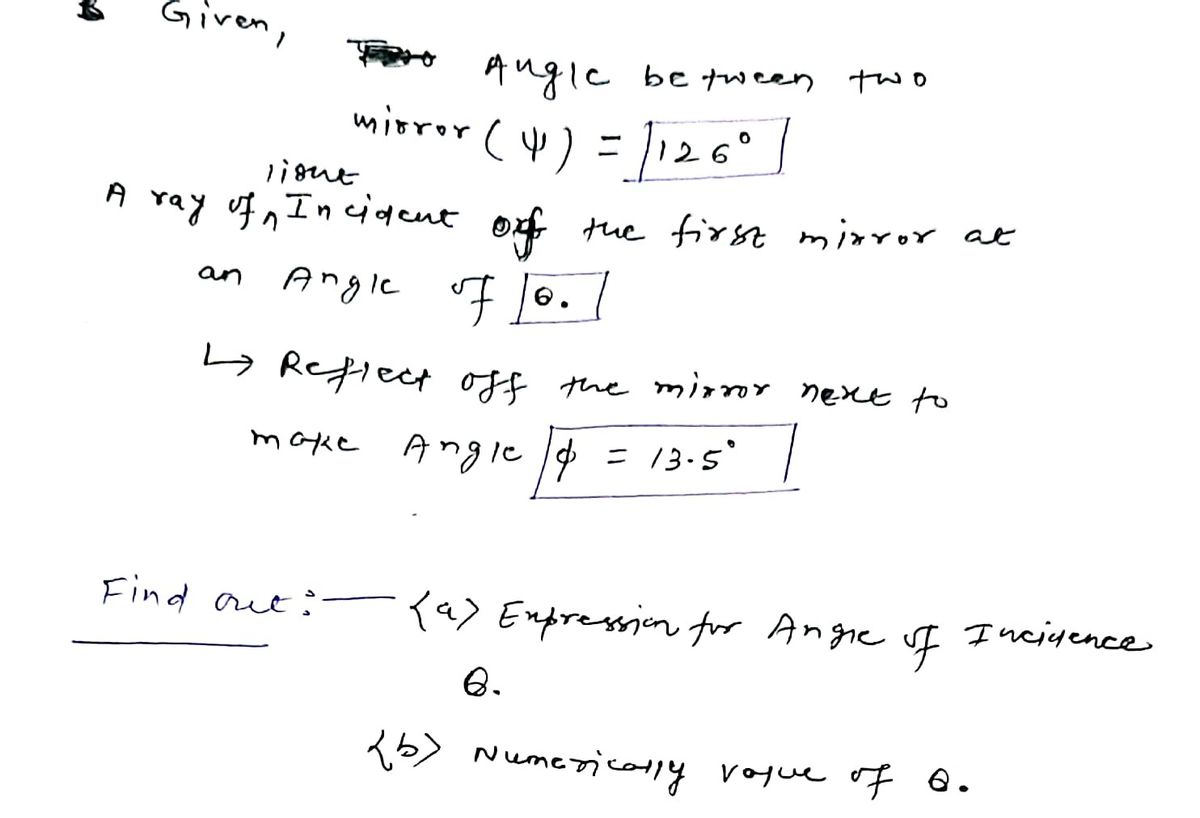 Given,
Angle between two
mirror (ψ) = 126°
light
A ray of ∧ Incident off the first mirror at
an Angle of θ.
↳ Reflect off the mirror next to
make Angle ϕ = 13.5°
Find out :— <a> Expression for Angle of Incidence
θ.
<b> Numerically value of θ.